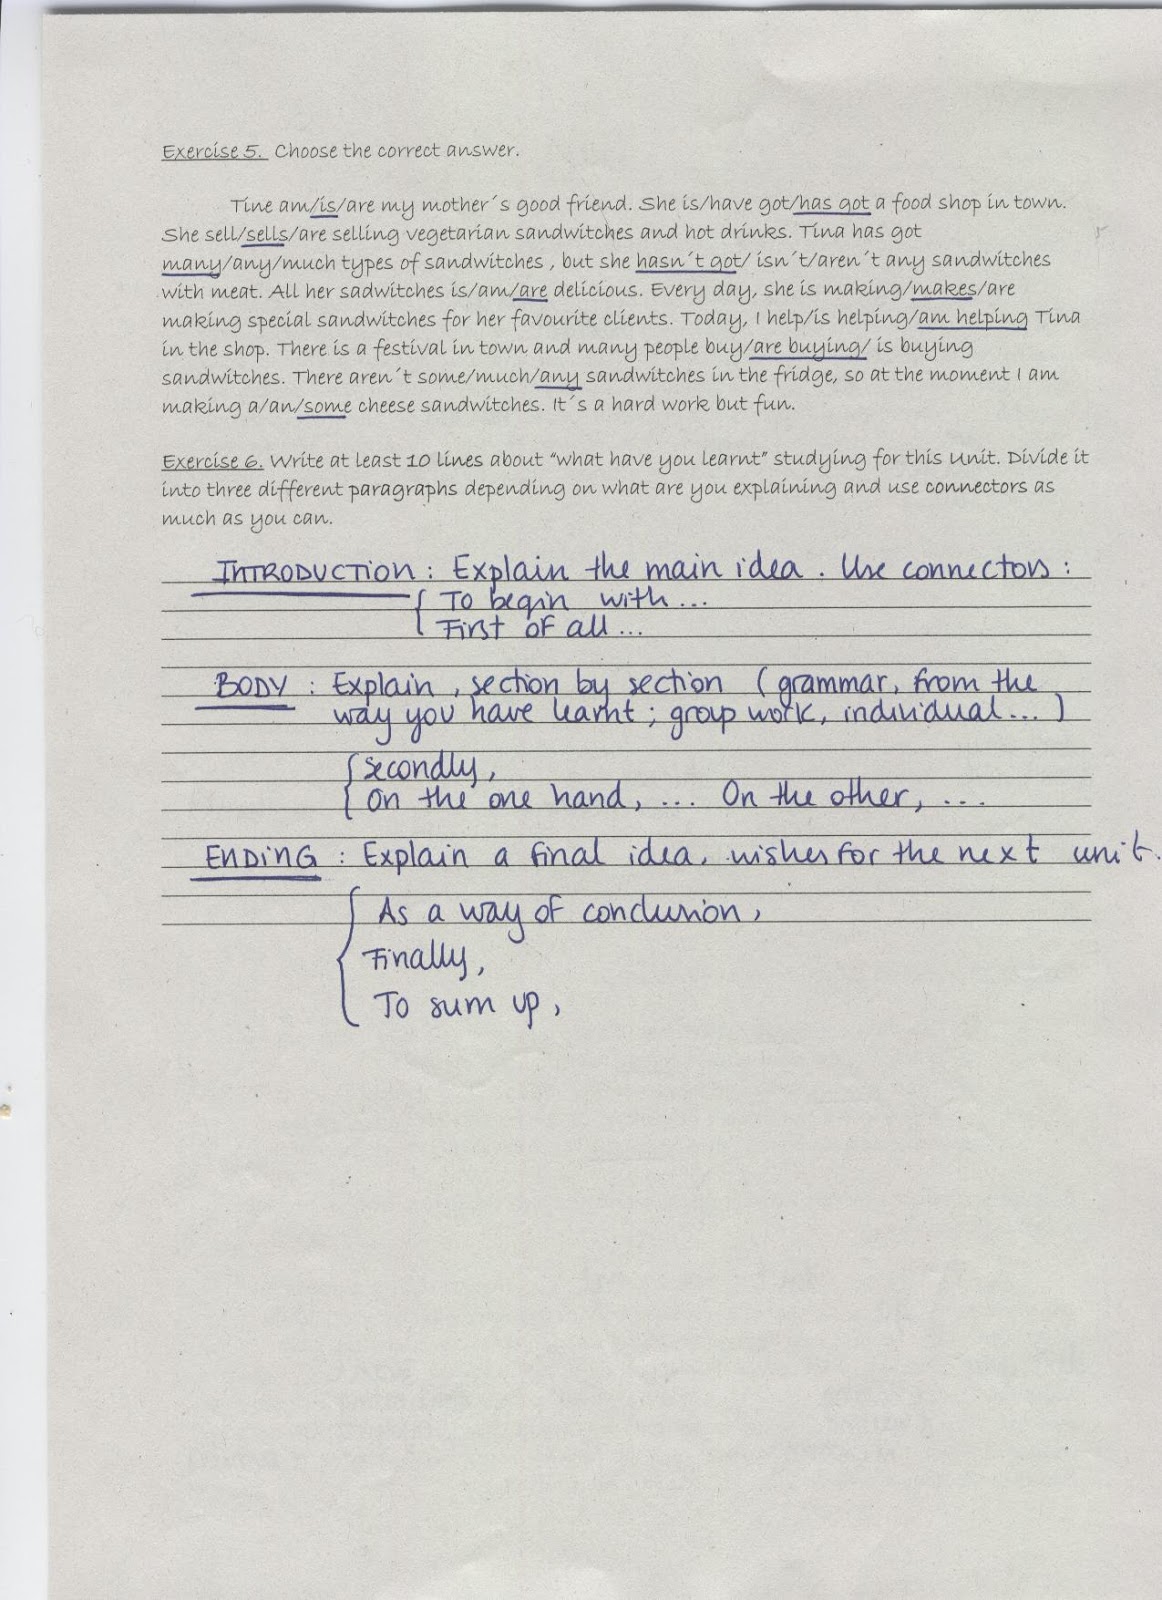 Exercise 5. Choose the correct answer.
Tine am/is/are my mother´s good friend. She is/have got/has got a food shop in town.
She sell/sells/are selling vegetarian sandwitches and hot drinks. Tina has got
many/any/much types of sandwitches , but she hasn´t got/ isn´t/aren´t any sandwitches
with meat. All her sadwitches is/am/are delicious. Every day, she is making/makes/are
making special sandwitches for her favourite clients. Today, I help/is helping/am helping Tina
in the shop. There is a festival in town and many people buy/are buying/ is buying
sandwitches. There aren´t some/much/any sandwitches in the fridge, so at the moment I am
making a/an/some cheese sandwitches. It´s a hard work but fun.
Exercise 6. Write at least 10 lines about "what have you learnt" studying for this Unit. Divide it
into three different paragraphs depending on what are you explaining and use connectors as
much as you can.
INTRODUCTION : Explain the main idea. Use connectors :
To begin with...
First of all ...
BODY : Explain, section by section (grammar, from the
way you have learnt ; group work, individual... )
Secondly,
On the one hand, ... On the other, ...
ENDING : Explain a final idea, wishes for the next unit.
As a way of conclusion,
Finally,
To sum up,